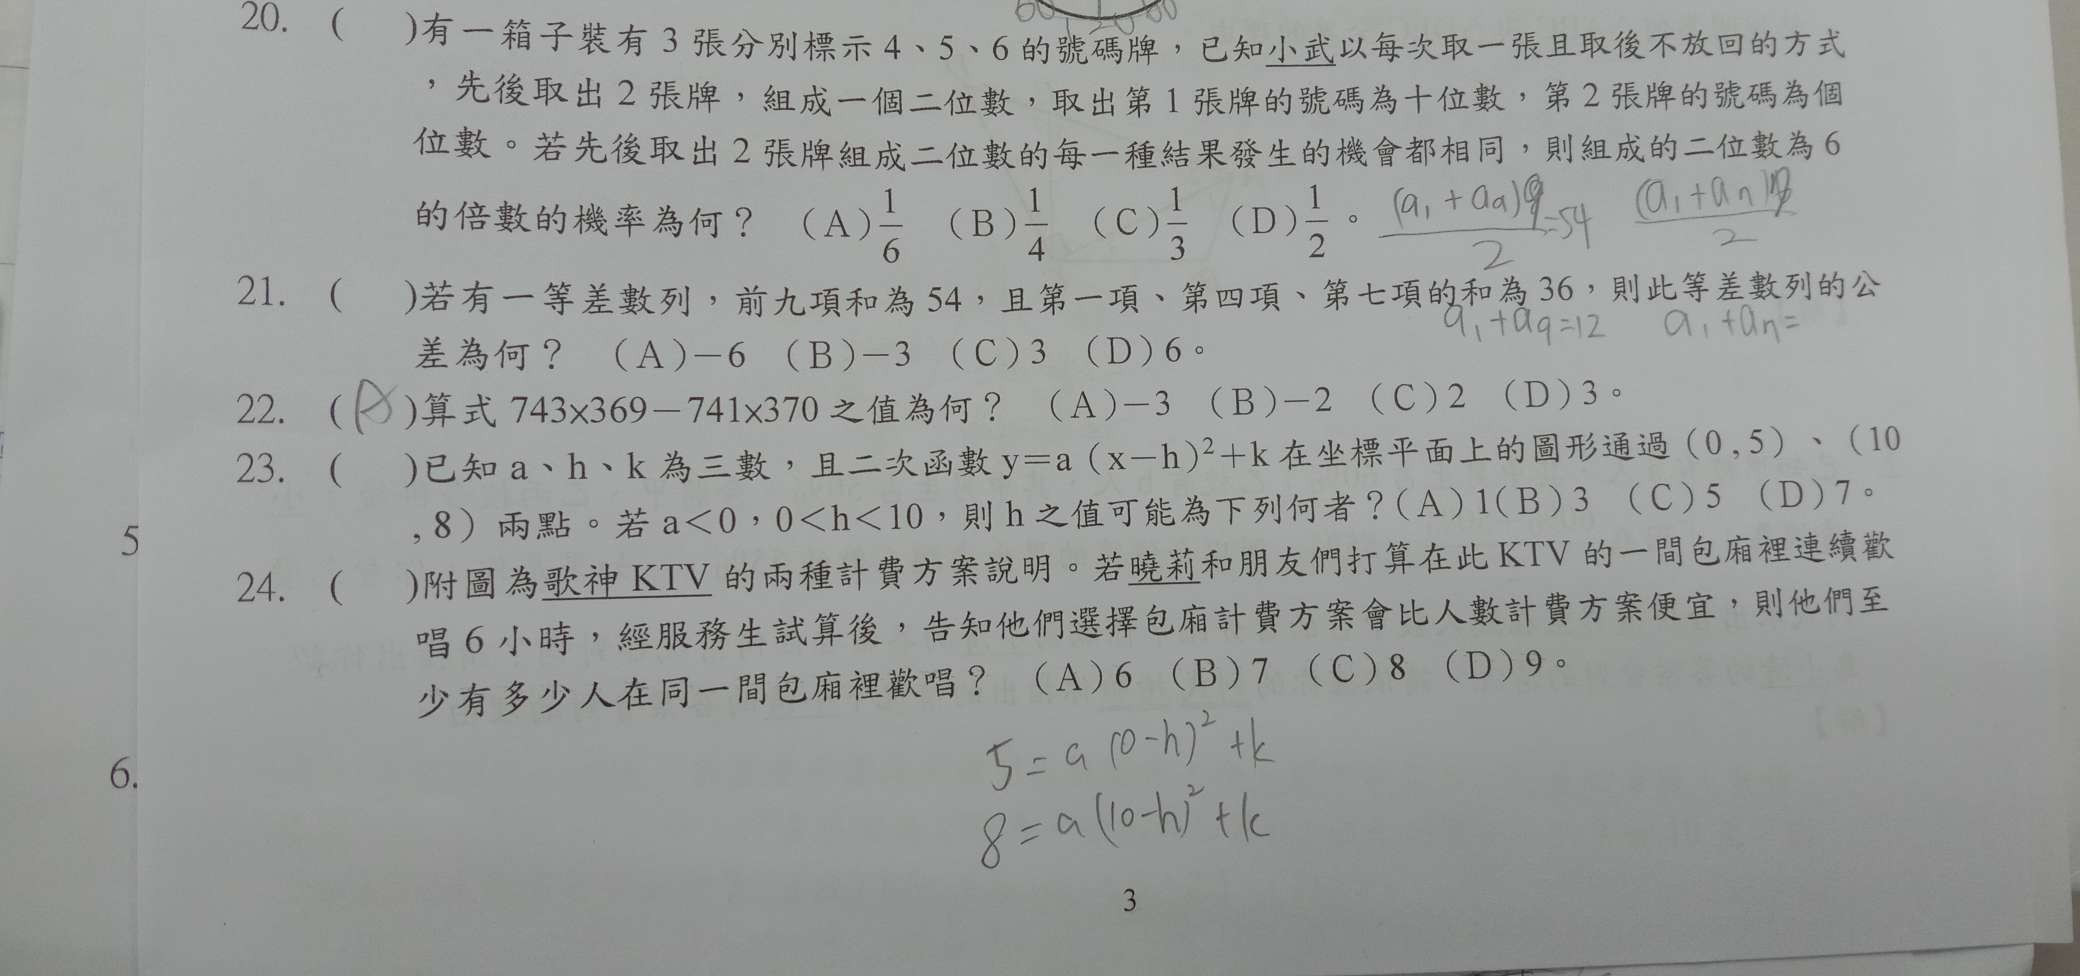 20. (　)有一箱子裝有 3 張分別標示 4、5、6 的號碼牌，已知小武以每次取一張且取後不放回的方式
，先後取出 2 張牌，組成一個二位數，取出第 1 張牌的號碼為十位數，第 2 張牌的號碼為個
位數。若先後取出 2 張牌組成二位數的每一種結果發生的機會都相同，則組成的二位數為 6
的倍數的機率為何？ （A）1/6 （B）1/4 （C）1/3 （D）1/2。
21. (　)若有一等差數列，前九項和為 54，且第一項、第四項、第七項的和為 36，則此等差數列的公
a₁+a9=12 a₁+an=
差為何？ （A）－6 （B）－3 （C）3 （D）6。
22. (　)算式 743×369－741×370 之值為何？ （A）－3 （B）－2 （C）2 （D）3。
23. (　)已知 a、h、k 為三數，且二次函數 y＝a（x－h）²＋k 在坐標平面上的圖形通過（0 , 5）、（10
, 8）兩點。若 a＜0，0＜h＜10，則 h 之值可能為下列何者？(A）1(B）3 （C）5 （D）7。
24. (　)附圖為歌神 KTV 的兩種計費方案說明。若曉莉和朋友們打算在此 KTV 的一間包廂裡連續歡
唱 6 小時，經服務生試算後，告知他們選擇包廂計費方案會比人數計費方案便宜，則他們至
少有多少人在同一間包廂裡歡唱？ （A）6 （B）7 （C）8 （D）9。
5
6.
5=a(0-h)²+k
8=a(10-h)²+k
3